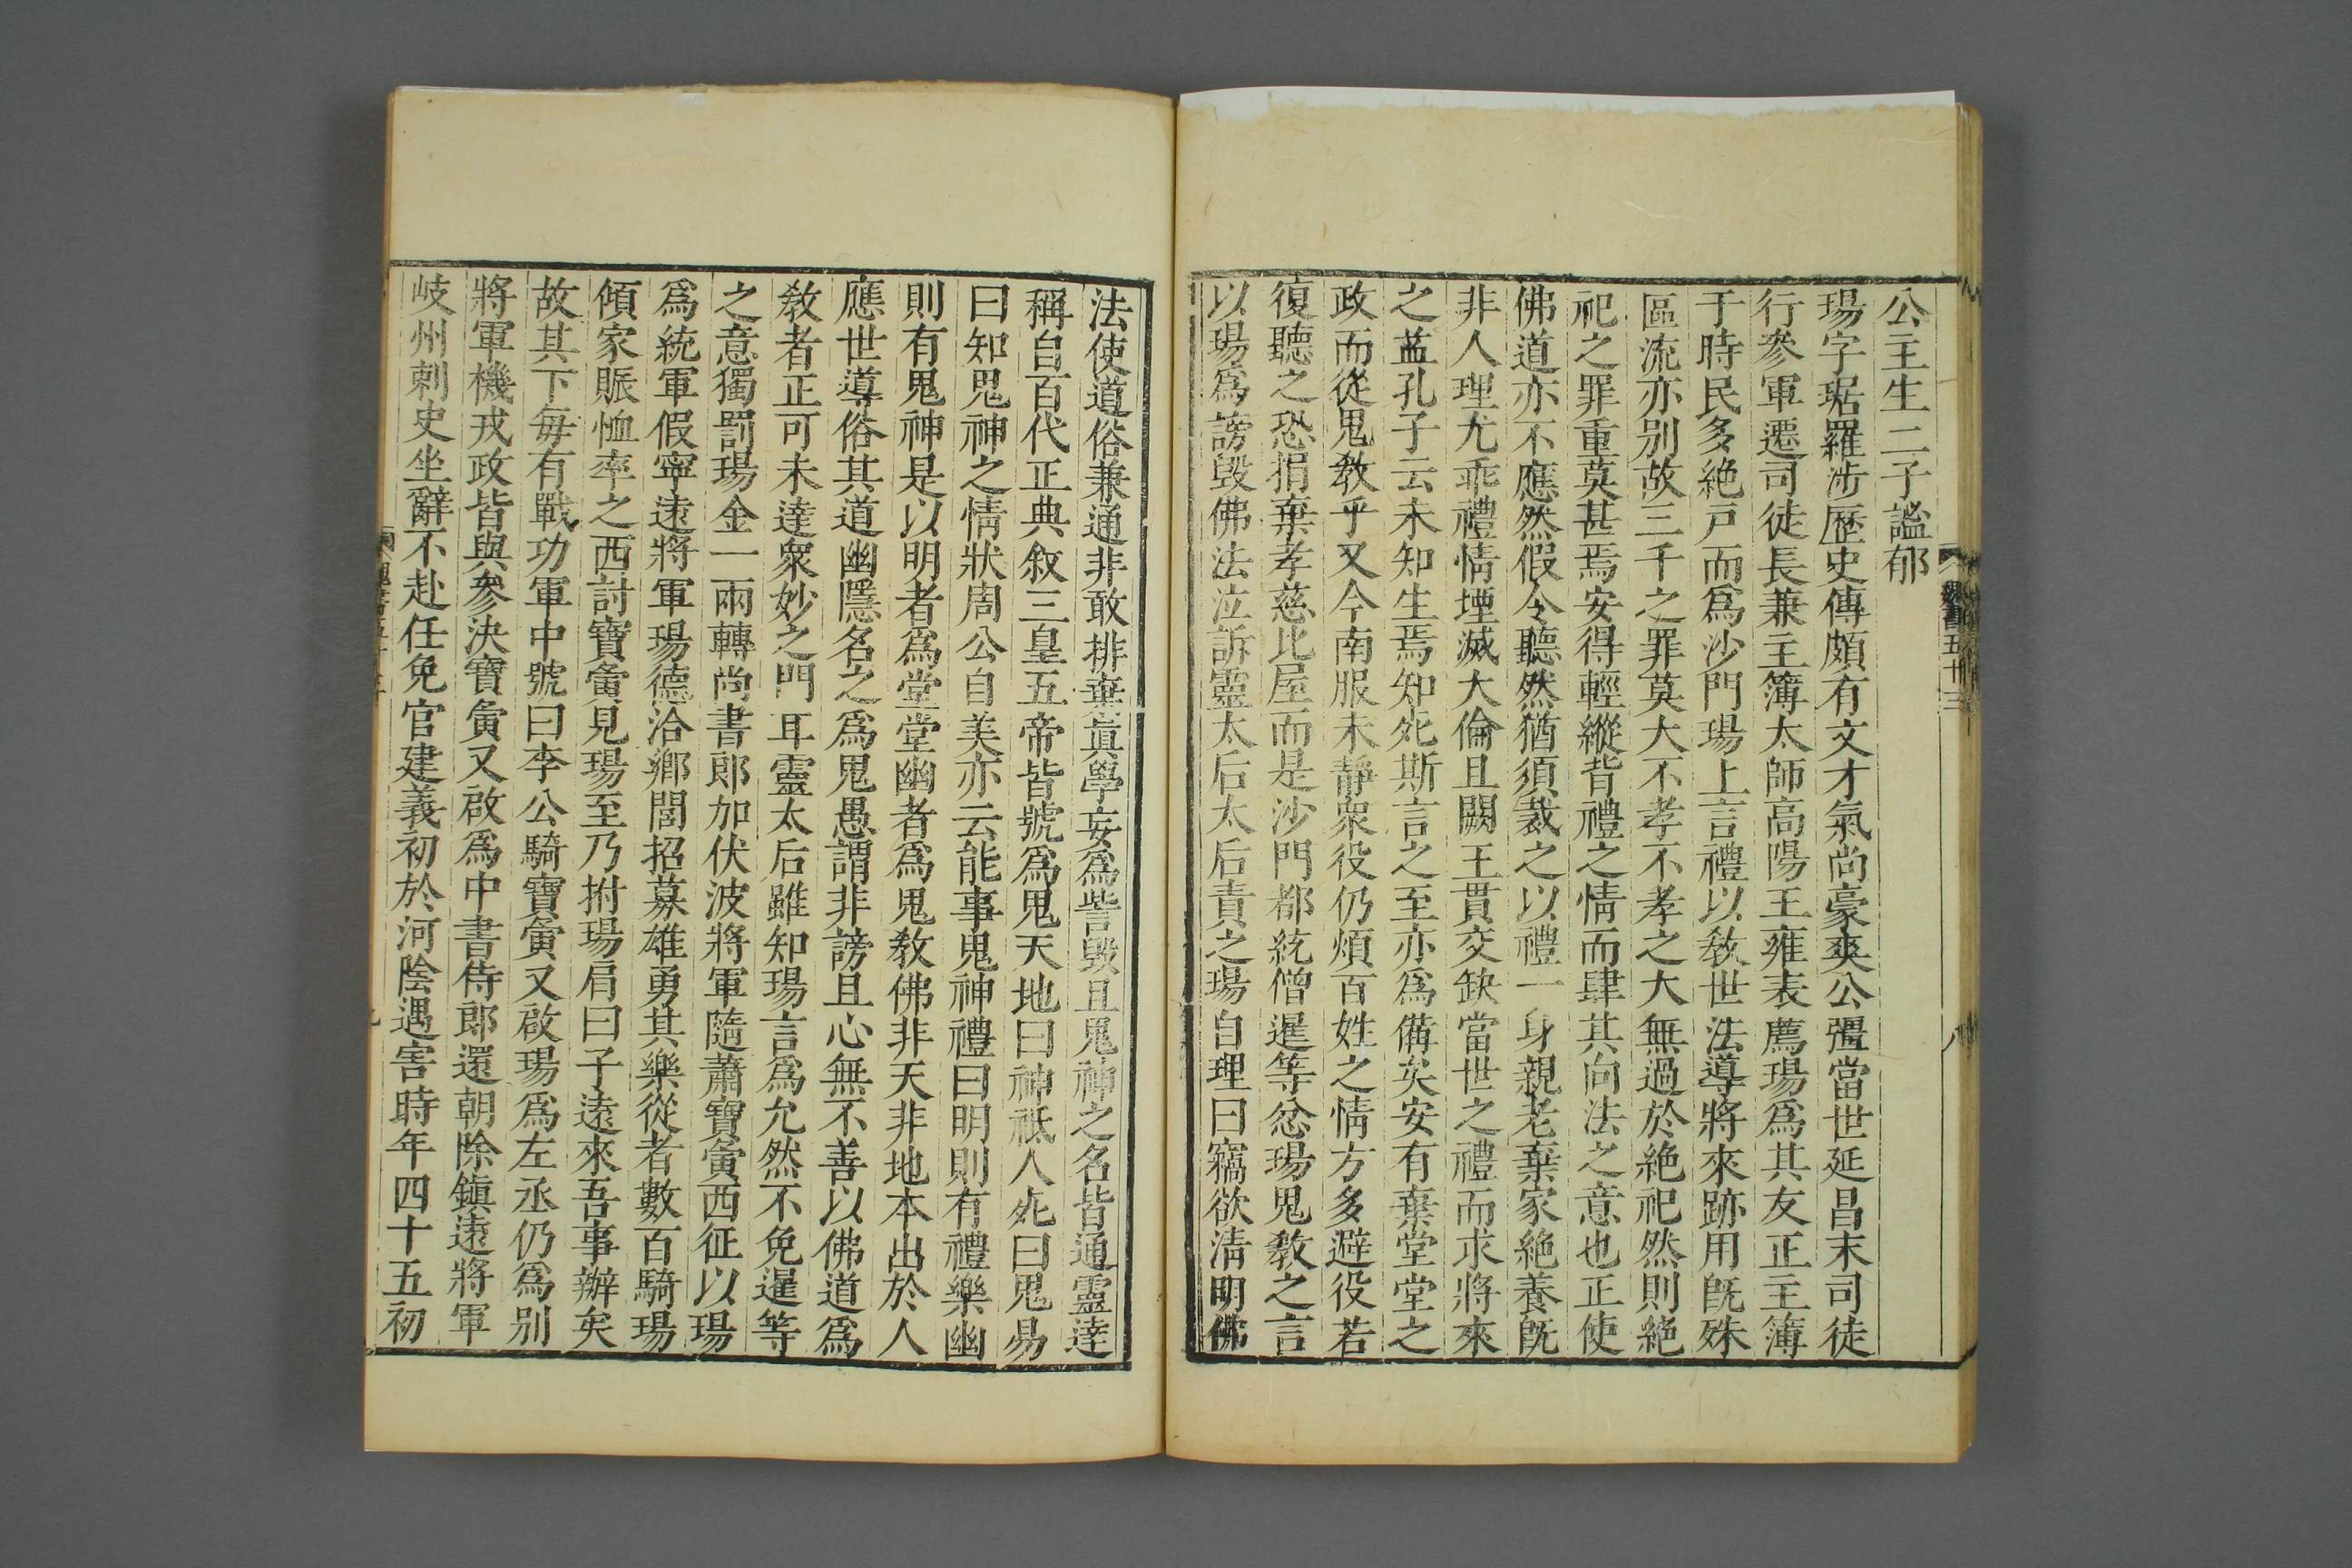 魏書五十三
八
公主生二子謐郁
瑒字琚羅涉歷史傳頗有文才氣尚豪爽公彊當世延昌末司徒
行參軍遷司徒長兼主簿太師高陽王雍表薦瑒爲其友正主簿
于時民多絶戸而爲沙門瑒上言禮以敎世法導將來跡用旣殊
區流亦别故三千之罪莫大不孝不孝之大無過於絶祀然則絶
祀之罪重莫甚焉安得輕縱背禮之情而肆其向法之意也正使
佛道亦不應然假令聽然猶須裁之以禮一身親老棄家絶養旣
非人理尤乖禮情堙滅大倫且闕王貫交缺當世之禮而求將來
之益孔子云未知生焉知死斯言之至亦爲備矣安有棄堂堂之
政而從鬼敎乎又今南服未靜衆役仍煩百姓之情方多避役若
復聽之恐捐棄孝慈比屋而是沙門都統僧暹等忿瑒鬼敎之言
以瑒爲謗毀佛法泣訴靈太后太后責之瑒自理曰竊欲淸明佛
法使道俗兼通非敢排棄眞學妄爲訾毀且鬼神之名皆通靈達
稱自百代正典敘三皇五帝皆號爲鬼天地曰神祇人死曰鬼易
曰知鬼神之情狀周公自美亦云能事鬼神禮曰明則有禮樂幽
則有鬼神是以明者爲堂堂幽者爲鬼敎佛非天非地本出於人
應世導俗其道幽隱名之爲鬼愚謂非謗且心無不善以佛道爲
敎者正可未達衆妙之門耳靈太后雖知瑒言爲允然不免暹等
之意獨罰瑒金一兩轉尚書郎加伏波將軍隨蕭寶夤西征以瑒
爲統軍假寧遠將軍瑒德洽鄕閭招募雄勇其樂從者數百騎瑒
傾家賑恤率之西討寶夤見瑒至乃拊瑒肩曰子遠來吾事辦矣
故其下每有戰功軍中號曰李公騎寶夤又啟瑒爲左丞仍爲别
將軍機戎政皆與參決寶夤又啟爲中書侍郎還朝除鎭遠將軍
岐州刺史坐辭不赴任免官建義初於河陰遇害時年四十五初